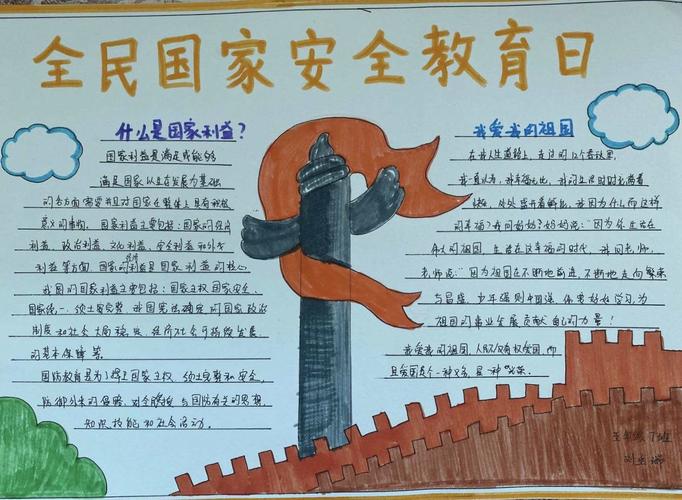 全民国家安全教育日
什么是国家利益?
国家利益是满足或能够
满足国家以生存发展为基础
的各方面需要并且对国家在整体上具有积极
意义的事物。国家利益主要包括：国家的
利益、政治利益、文化利益、安全利益和外
利益等方面。国家的利益是国家利益的核心
我国的国家利益主要包括：国家主权、国家安全、
国家统一、领土完整、我国宪法确定的国家政治
制度和社会大局稳定、经济社会可持续发展
的基本保障等。
国防教育是为了捍卫国家主权、领土完整和安全，
防御外来的侵略、对全民与国防有关的思想、
知识技能和社会活动。
我爱我的祖国
在我人生道路上，走过的12个春秋里，
我一直认为，我幸福无比，我的生活时时充满着
的幸福？我问妈妈？妈妈说："因为你生活在
伟大的祖国，生活在这幸福的时代，我问老师，
老师说："因为祖国在不断地前进，不断地走向繁荣
与昌盛，少年强则中国强，你需好好学习，为
祖国的事业发展贡献自己的力量！
我爱我的祖国，人民有权爱国，而
且爱国是一种义务，是一种光荣。
五年级7班